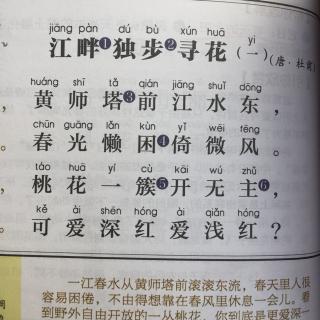 jiāng pàn dú bù xún huā yī
江畔❶独步❷寻花(一)(唐·杜甫)
huáng shī tǎ qián jiāng shuǐ dōng
黄师塔❸前江水东，
chūn guāng lǎn kùn yǐ wēi fēng
春光懒困❹倚微风。
táo huā yí cù kāi wú zhǔ
桃花一簇❺开无主❻，
kě ài shēn hóng ài qiǎn hóng
可爱深红爱浅红？
一江春水从黄师塔前滚滚东流，春天里人很
容易困倦，不由得想靠在春风里休息一会儿。看
到野外自由开放的一丛桃花，你到底是更爱深一